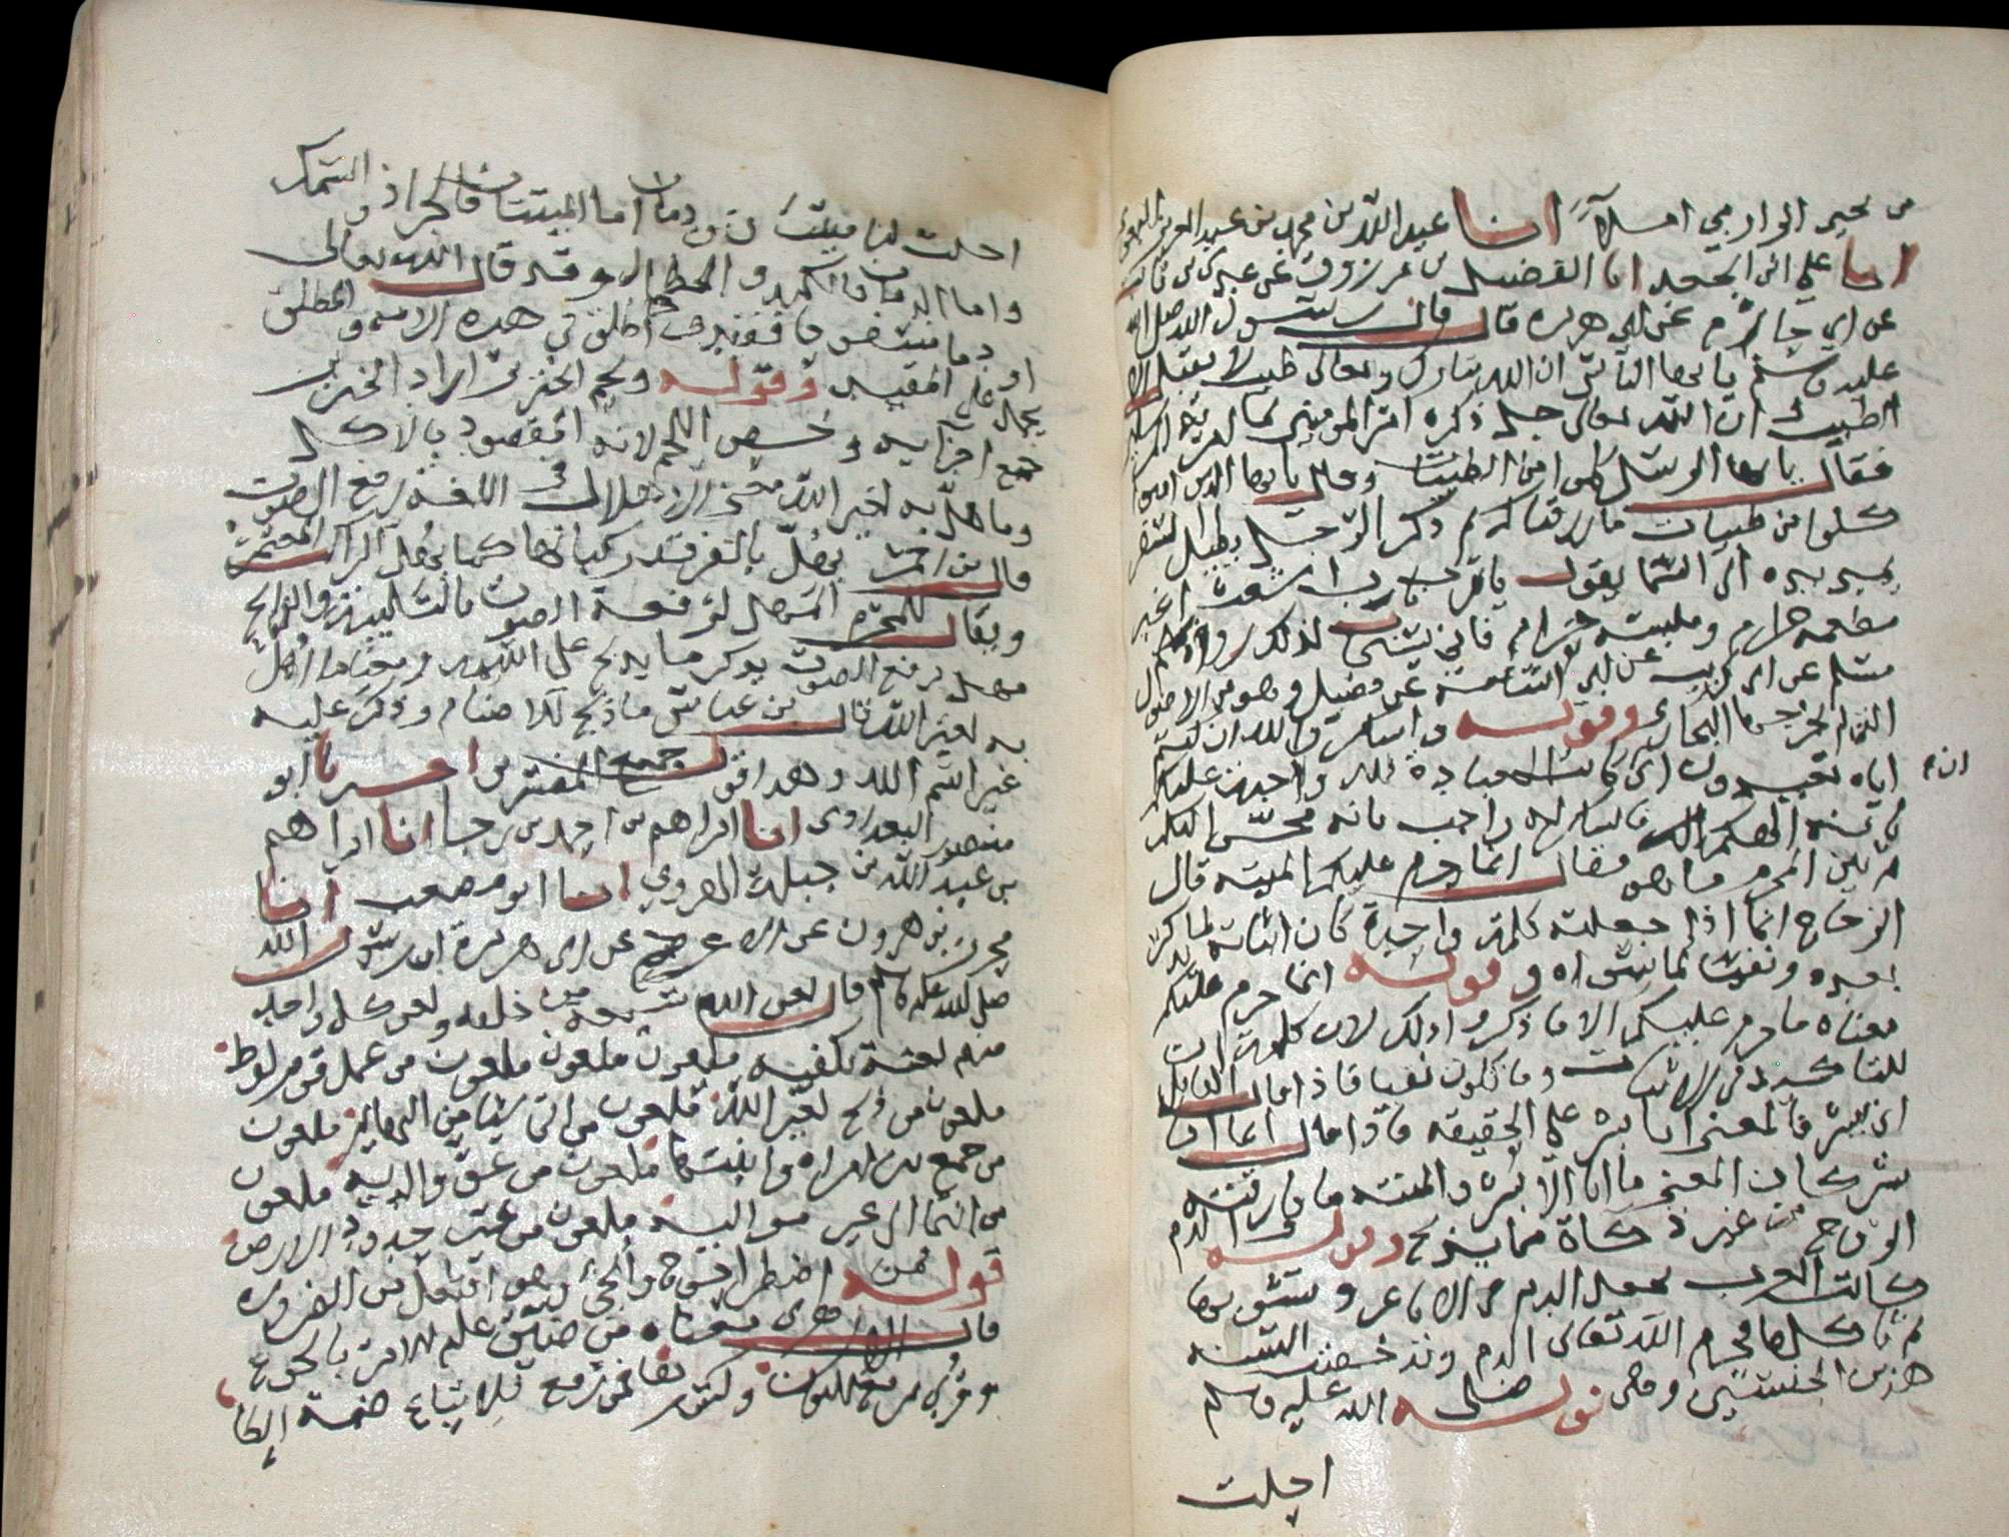 بن يحيى الوارمي املاً انا عبد الله بن محمد بن عبد العزيز البغوي
انا علي ابن الجعد انا الفضيل بن مرزوق عن عدي بن ثابت
عن ابي حازم عن ابي هريرة قال قال رسول الله صلى الله
عليه وسلم يا ايها الناس ان الله تبارك وتعالى طيب لا يقبل الا
الطيب ان الله تعالى جل ذكره امر المومنين بما امر به المرسلين
فقال يا ايها الرسل كلوا من الطيبات وقال يا ايها الذين امنوا
كلوا من طيبات ما رزقناكم ثم ذكر الرجل يطيل السفر
يمد يده الى السما يقول يا رب يا رب اشعث اغبر
مطعمه حرام وملبسه حرام فاني يستجاب لذلك رواه
مسلم عن ابي كريب عن ابي اسامة عن فضيل وهو من الاصول
التي لم يخرجها البخاري وقوله واشكروا لله ان كنتم
اياه تعبدون اي كانت العبادة لله واجبة عليكم انه
بانه الهكم فالشكر له واجب بانه محسن اليكم
ثم بين المحرم ما هو فقال انما حرم عليكم الميتة قال
الزجاج انما اذا جعلته كلمة واحدة كان اثباتا لما يذكر
بعده ونفيا لما سواه وقوله انما حرم عليكم
معناه ما حرم عليكم الا ما ذكر وذلك لان كلمة ان
للتاكيد في الاثبات وما تكون نفيا فاذا قال القايل
اني بشر فالمعنى انا بشر على الحقيقه فاذا قال انما انا
بشر كان المعنى ما انا الا بشر والميتة ما فارقته
الروح من غير ذكاة مما يذبح وقوله والدم
كانت العرب تجعل الدم في الاباعر وتشويها
ثم تاكلها فحرم الله تعالى الدم وقد خصت السنة
هذين الجنسين وهي قوله صلى الله عليه وسلم
احلت
احلت لنا ميتتان ودمان اما الميتتان فالجراد والسمك
واما الدمان فالكبد والطحال وقد قال الله تعالى
او دما مسفوحا فقيد اطلق في هذه الاية والمطلق
يحمل على المقيد وقوله ولحم الخنزير اراد الخنزير
بجميع اجزايه وخص اللحم لانه المقصود بالاكل
وما اهل به لغير الله معنى الاهلال في اللغة رفع الصوت
قال بن احمر يهل بالفرقد ركبانها كما يهل الراكب المعتمر
ويقال للمحرم المهل لرفعه الصوت بالتلبية والذابح
مهل لرفع الصوت بذكر ما يذبح على اسمه ومعنى ما اهل
به لغير الله قال بن عباس ما ذبح للاصنام وذكر عليه
غير اسم الله وهذا قول جميع المفسرين اخبرنا ابو
منصور البغدادي انا ابراهيم بن احمد بن رجا انا ابراهيم
بن عبد الله بن جبلة الهروي انا ابو مصعب انا
محرز بن هرون عن الاعرج عن ابي هريرة ان رسول الله
صلى الله عليه وسلم قال لعن الله سبعة من خلقه ولعن كل واحد
منهم لعنة تكفيه ملعون ملعون ملعون من عمل عمل قوم لوط
ملعون من ذبح لغير الله ملعون من اتى شيا من البهايم ملعون
من جمع بين امراة وابنتها ملعون من عق والديه ملعون
من انتما الى غير مواليه ملعون من غير حدود الارض
قوله فمن اضطر احوج والجئ وهو افتعل من الضرورة
قال الازهري معناه من ضيق عليه الامر بالجوع
وقرئ برفع النون وكسرها فمن رفع فللاتباع ضمة الطا